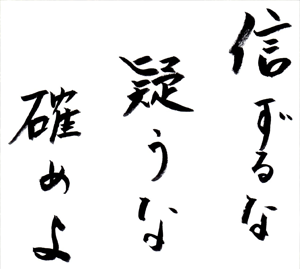 信ずるな
疑うな
確めよ